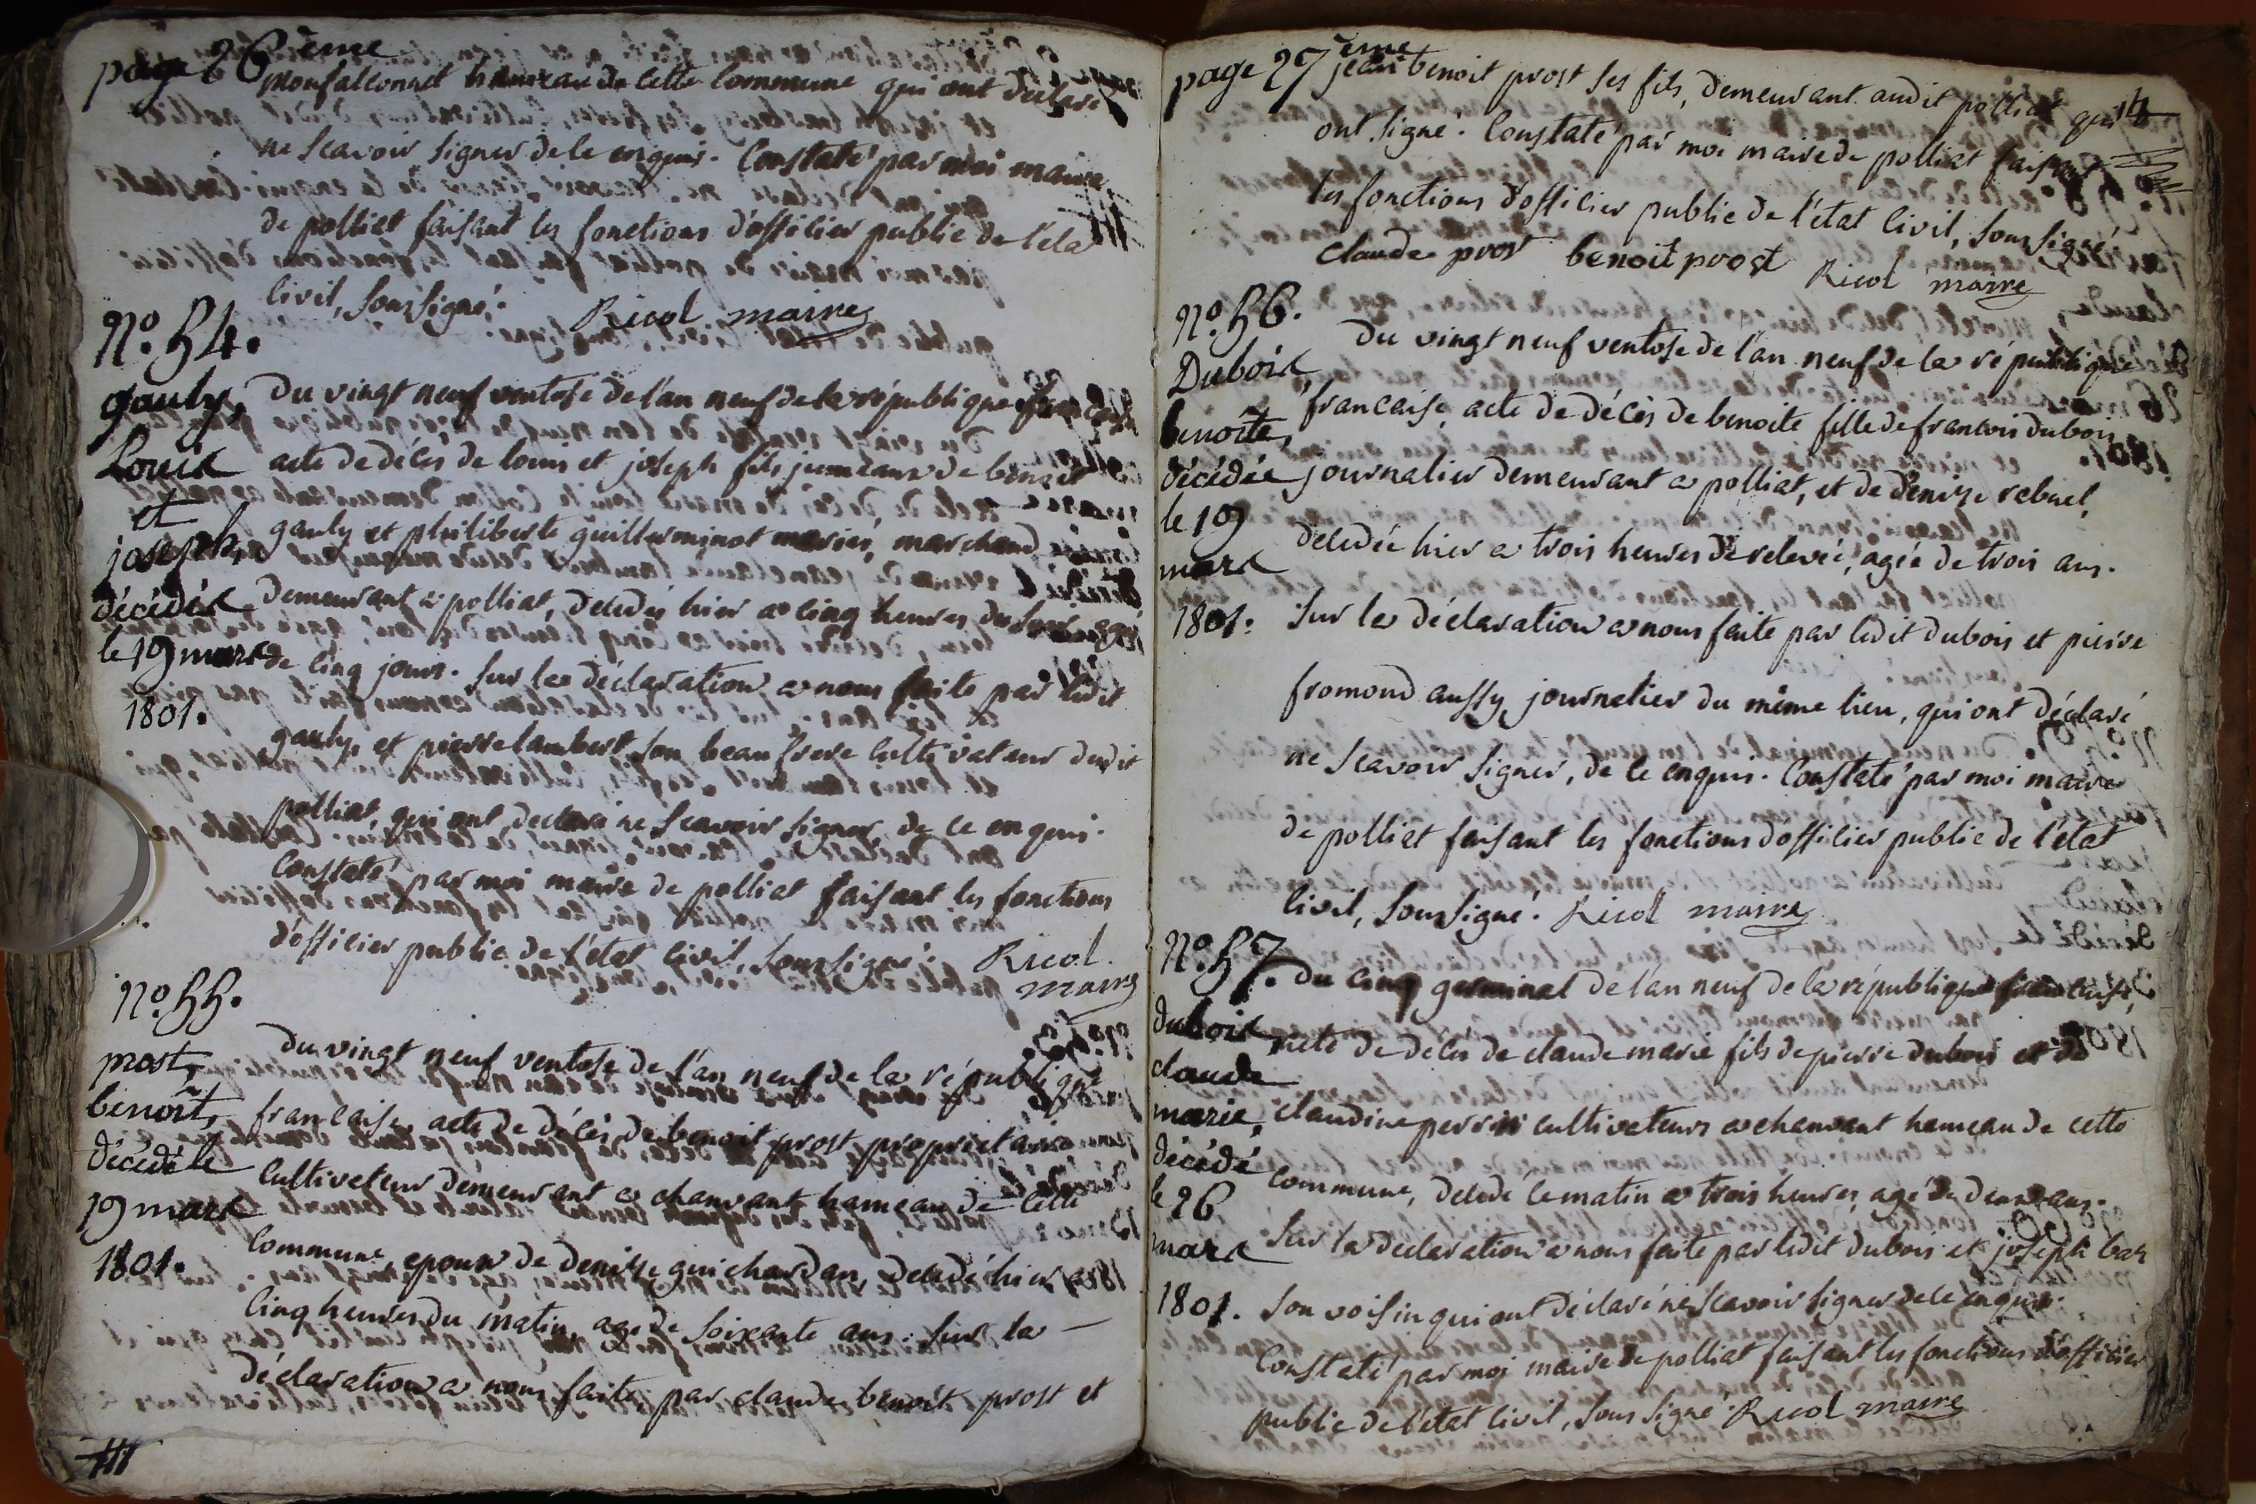 page 26 ème
monfalconnet hameau de cette commune qui ont déclaré
ne scavoir signer de ce enquis. Constaté par moi maire
de polliat faisant les fonctions d'officier public de l'éta
civil, soussigné. Ricol maire
N.º 54.
gauly,
Louis
et
joseph,
décédés
le 19 mars
1801.
Du vingt neuf ventose de l'an neuf de la république
acte de décès de louis et joseph fils jumeaux de benoit
gauly et philiberte guillerminot mariés, marchand
demeurant a polliat, décédés hier a cinq heures du soir agés
de cinq jours. Sur la déclaration a nous faite par ledit
gauly, et pierre lambert son beau frere cultivateur dudit
polliat, qui ont declaré ne scavoir signer de ce enquis.
Constaté par moi maire de polliat faisant les fonctions
d'officier public de l'état civil, soussigné. Ricol
maire
N.º 55.
prost,
benoît,
décédé le
19 mars
1801.
Du vingt neuf ventose de l'an neuf de la république
francaise, acte de décès de benoit prost proprietaire
cultivateur demeurant a chanvant hameau de cette
commune, epoux de denize guichardan, décédé hier a
cinq heures du matin, agé de soixante ans. Sur la
déclaration a nous faite par claude benoit prost et
page 27 ème
jean benoit prost ses fils, demeurant audit polliat qui
ont signé. Constaté par moi maire de polliat faisant
les fonctions d'officier public de l'état civil, soussigné.
claude prost benoit prost Ricol maire
N.º 56.
Dubois,
benoîte,
décédée
le 19
mars
1801.
Du vingt neuf ventose de l'an neuf de la république
francaise, acte de décès de benoite fille de francois dubois
journalier demeurant a polliat, et de denize rebuel,
décédée hier a trois heures de relevée, agée de trois ans.
Sur la déclaration a nous faite par ledit dubois et pierre
fromond aussy journalier du même lieu, qui ont déclaré
ne scavoir signer, de ce enquis. Constaté par moi maire
de polliat faisant les fonctions d'officier public de l'état
civil, soussigné. Ricol maire
N.º 57.
dubois
claude
marie,
décédé
le 26
mars
1801.
Du cinq germinal de l'an neuf de la république francaise,
acte de décès de claude marie fils de pierre dubois et de
claudine perrin cultivateurs a chanvant hameau de cette
commune, décédé le matin a trois heures, agé de deux ans.
Sur la déclaration a nous faite par ledit dubois et joseph
son voisin qui ont déclaré ne scavoir signer de ce enquis.
Constaté par moi maire de polliat faisant les fonctions d'officier
public de l'état civil, soussigné. Ricol maire